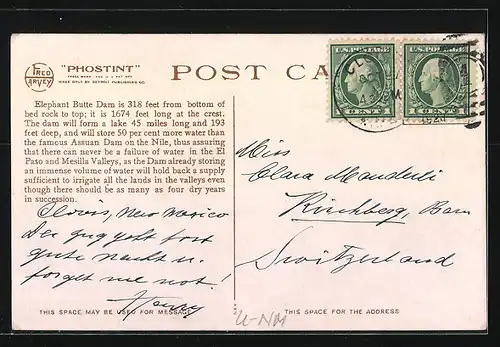 FRED
HARVEY
"PHOSTINT"
MADE ONLY BY DETROIT PUBLISHING CO.
POST CA
U.S. POSTAGE U.S. POSTAGE
1 CENT 1 CENT
1920
Elephant Butte Dam is 318 feet from bottom of
bed rock to top; it is 1674 feet long at the crest.
The dam will form a lake 45 miles long and 193
feet deep, and will store 50 per cent more water than
the famous Assuan Dam on the Nile, thus assuring
that there can never be a failure of water in the El
Paso and Mesilla Valleys, as the Dam already storing
an immense volume of water will hold back a supply
sufficient to irrigate all the lands in the valleys even
though there should be as many as four dry years
in succession.
Clovis, New Mexico
Der zug geht fort
gute nacht u.
forget me not!
Henry
Miss
Clara Manderli
Kirchberg, Bern
Switzerland
THIS SPACE MAY BE USED FOR MESSAGE
THIS SPACE FOR THE ADDRESS
U-NM